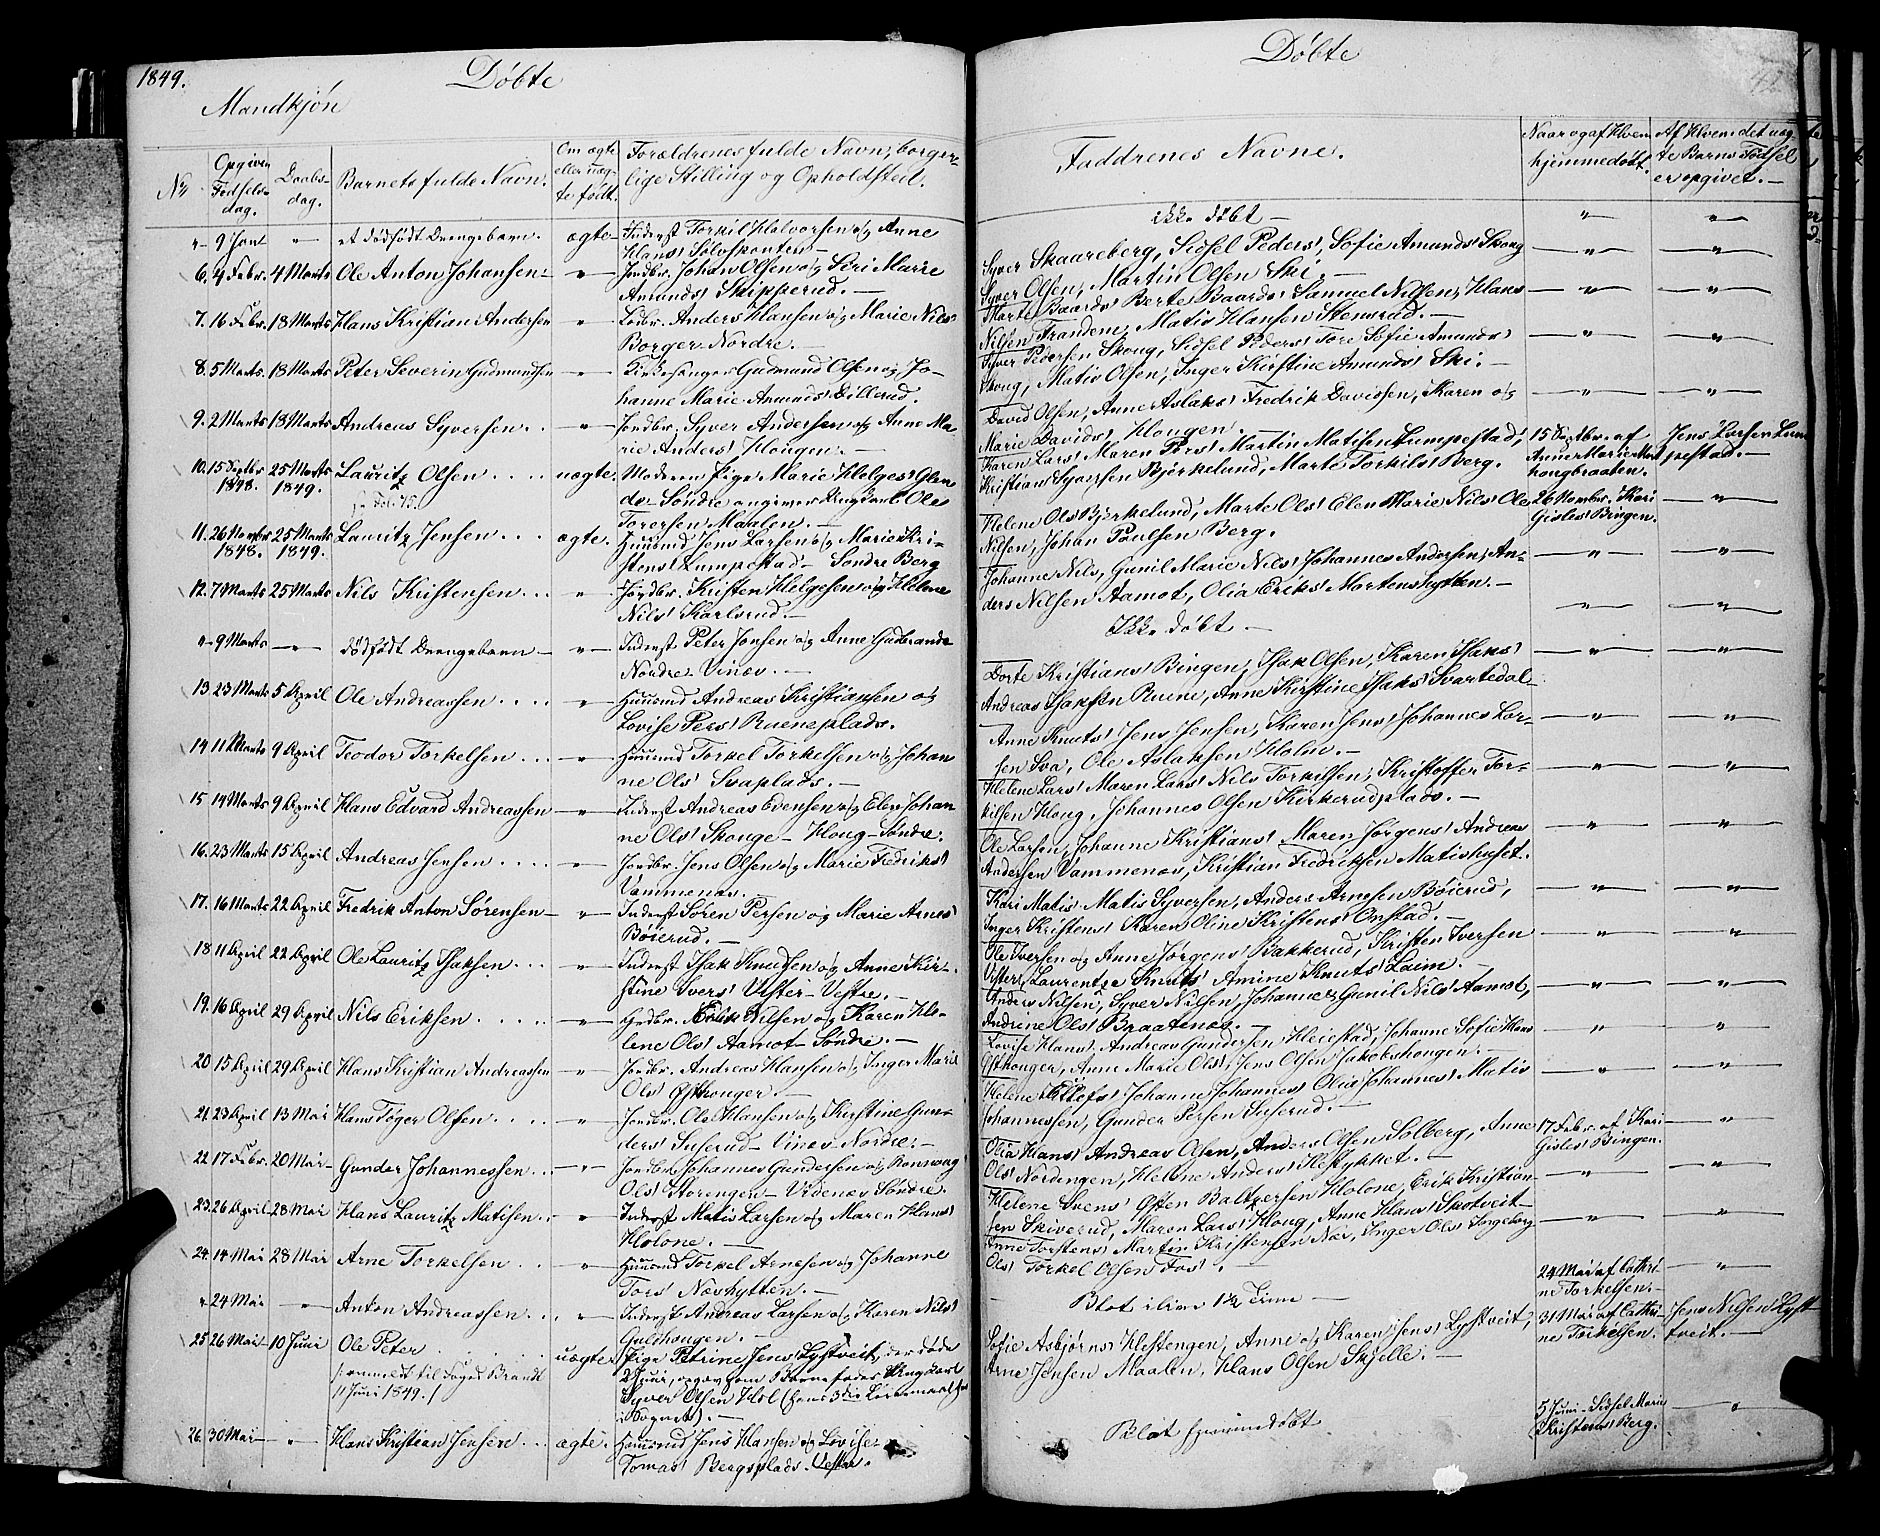 1849.
Døbte
Mandkjøn
No
Opgiven Fødselsdag.
Daabsdag.
Barnets fulde Navn.
Om ægte eller uægte født.
Forældrenes fulde Navn, borgerlige Stilling og Opholdsted.
" 9 Jan " et dødfødt Drengebarn. ægte Inderst Torkil Halvorsen og Anne
Hans
6. 4 Febr. 4 Marts Ole Anton Johansen " Jordbr. Johan Olsen og Siri Marie
Amunds Skipperud.
7. 16 Febr. 18 Marts Hans Kristian Andersen " Anders Hansen og Marie Nils
Borger Nordre.
8. 5 Marts. 18 Marts Peter Severin Gudmundsen " Kirkesanger Gudmund Olsen og Jo-
hanne Marie Amunds Dillerud.
9. 2 Marts 18 Marts Andreas Syversen " Jordbr. Syver Andersen og Anne Ma-
rie Anders Hougen.
10. 15 Septbr 1848. 25 Marts 1849. Lauritz Olsen uægte. Moderen Pige Marie Helges
Søndre angiver Ungkarl Ole
Torersen Maalen.
11. 26 Novembr 1848. 25 Marts 1849. Lauritz Jensen ægte. Huusmd Jens Larsen og Marie Kri-
stens Lumpestad Søndre Berg
12. 7 Marts 25 Marts Nils Kristensen " Jordbr. Kristen Helgesen og Helene
Nils Karlsrud.
" 9 Marts " dødfødt Drengebarn " Inderst Peter Jensen og Anne Gudbrands
Nordre Vinæs.
13 23 Marts 5 April Ole Andreassen " Huusmd Andreas Kristiansen og
Lovise Pers Rueneplads.
14 11 Marts 9 April Teodor Torkelsen " Huusmd Torkel Torkelsen og Johan-
ne Ols Svaplads.
15 14 Marts 9 April Hans Edvard Andreassen " Inderst Andreas Evensen og Elen Johan-
ne Ols Skouge Houg Søndre.
16. 23 Marts 15 April Andreas Jensen " Jordbr. Jens Olsen og Marie Fredriks
Vammenæs.
17. 16 Marts 22 April Fredrik Anton Sørensen " Inderst Søren Persen og Marie Arnes
Bøierud.
18 11 April 22 April Ole Lauritz Isaksen " Inderst Isak Knudsen og Anne Kir-
stine Ivers Vister Vestre.
19. 16 April 29 April Nils Eriksen " Erik Nilsen og Karen He-
lene Ols Aamot Søndre.
20 15 April 29 April Hans Kristian Andreassen " Jordbr. Andreas Hansen og Inger Marie
Ols Østhouger.
21 23 April 13 Mai Hans Føger Olsen " Jordbr. Ole Hansen og Kirstine Gun-
ders Suserud Vinæs Nordre.
22 17 Febr. 20 Mai Gunder Johannessen " Jordbr. Johannes Gundersen og Ronnoug
Ols Storengen Videnæs Søndre.
23. 26 April 28 Mai Hans Lauritz Matisen " Inderst Matis Larsen og Maren Hans
Holone.
24. 14 Mai 28 Mai Arne Torkelsen " Huusmd Torkel Arnesen og Johanne
Tors Næshytten.
" 24 Mai " Anton Andreassen " Inderst Andreas Larsen og Karen Nils
Guldhougen.
25 26 Mai 10 Juni Ole Peter uægte Pige Petrine Jens Lystveit, der døde
anmeldt til Foged Brandt 2 Juni, opgav som Barnefader Ungkarl
11 Juni 1849. Syver Olsen Hol (hans 3die Leiermaal
i Sognet).
26. 30 Mai " Hans Kristian Jensen ægte. Huusmd Jens Hansen og Lovise
Tomas Bergsplads Vestre.
Døbte
Faddrenes Navne.
Naar og af Hvem hjemmedøbt.
Af Hvem det uægte Barns Fødsel er opgivet.
ikke døbt
Syver Skaareberg, Sidsel Peders, Sofie Amunds Skoug
Syver Olsen, Martin Olsen Ski.
Marte Baards Berte Baards Samuel Nilsen, Hans
Nilsen Frandem, Matis Hansen Stensrud.
Syver Pedersen Skoug, Sidsel Peders Tore Sofie Amunds
Skoug, Matis Olsen, Inger Kirstine Amunds Ski.
David Olsen, Anne Aslaks Fredrik Davidsen, Karen og
Marie Davids Hougen.
Karen Lars Maren Pers Martin Matisen Lumpestad,
Kristians Syversen Bjørkelund, Marte Torkils Berg.
15 Septbr. af Anne Marie
hougbraaten.
Jens Larsen Lumpestad.
Helene Ols Bjørkelund, Marte Ols Elen Marie Nils Ole
Nilsen, Johan Paulsen Berg.
26 Novembr. Kari
Gisles Bingen.
Johanne Nils, Gunil Marie Nils Johannes Andersen, An-
ders Nilsen Aamot, Olia Eriks Mortenshytten.
Ikke døbt
Dorte Kristians Bingen, Isak Olsen, Karen Isaks
Andreas Isaksen Ruene, Anne Kirstine Isaks Svartedal
Anne Knuts Jens Jensen, Karen Jens Johannes Lar-
sen Sva, Ole Aslaksen Holm.
Helene Lars Maren Lars Nils Torkilsen, Kristoffer Tor-
kilsen Houg, Johannes Olsen Kirkerudplads.
Ole Larsen, Johanne Kristians Maren Jørgens Andreas
Andersen Vammenæs, Kristian Fredriksen Matishuset.
Kari Matis Matis Syversen, Anders Arnesen Bøierud,
Inger Kristens Karen Oline Kristens Onstad.
Ole Iversen og Anne Jørgens Bakkerud, Kristen Iversen
Vister, Laurentze Knuts Amine Knuts Laim.
Anders Nilsen, Syver Nilsen, Johannes, Gunil Nils Aamot,
Andrine Ols Braatenæs.
Lovise Hans, Andreas Gundersen Heiestad, Johanne Sofie Hans
Østhouger, Anne Marie Ols, Jens Olsen Jakobshougen.
Helene Johanne Johannes Olia Johannes Matis
Johannessen, Gunder Persen Suserud.
Olia Hans Andreas Olsen, Anders Olsen Solberg, Anne
Ols Nordengen, Helene Anders Hestykket.
17 Febr. af Kari
Gisles Bingen.
Helene Svens Østen Baltzersen Holone, Erik Kristian-
sen Skiverud, Maren Lars Houg, Anne Hans Skotveit
Anne Torstens Martin Kristensen Næs, Inger Ols Ingeborg
Ols Torkel Olsen Fos.
24 Mai af Cathri-
ne Torkelsen.
31 Mai af Cathri-
ne Torkelsen.
Jens Nilsen Lyst-
tveit.
Sofie Asbjørns Hestengen, Anne og Karen Jens Lystveit,
Arne Jensen Maalen, Hans Olsen Skjelle.
Blot hjemmedøbt.
5 Juni Sidsel Marie
Kristens Berg.